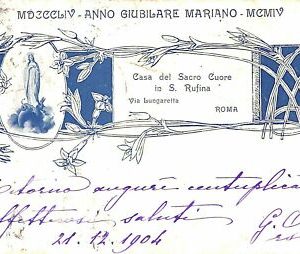 MDCCCLIV - ANNO GIUBILARE MARIANO - MCMIV
Casa del Sacro Cuore
in S. Rufina
Via Lungaretta
ROMA
ritorno auguri centuplica
affettuosi saluti
21.12.1904
G.